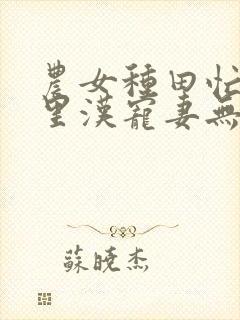 農女種田忙
里漢寵妻無
蘇曉杰